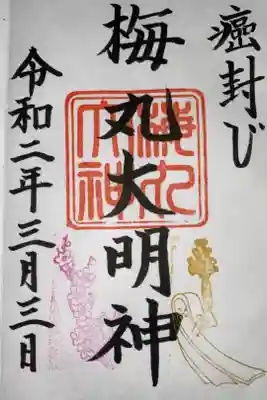 癌封じ
梅丸大明神
令和二年三月三日
梅丸大神